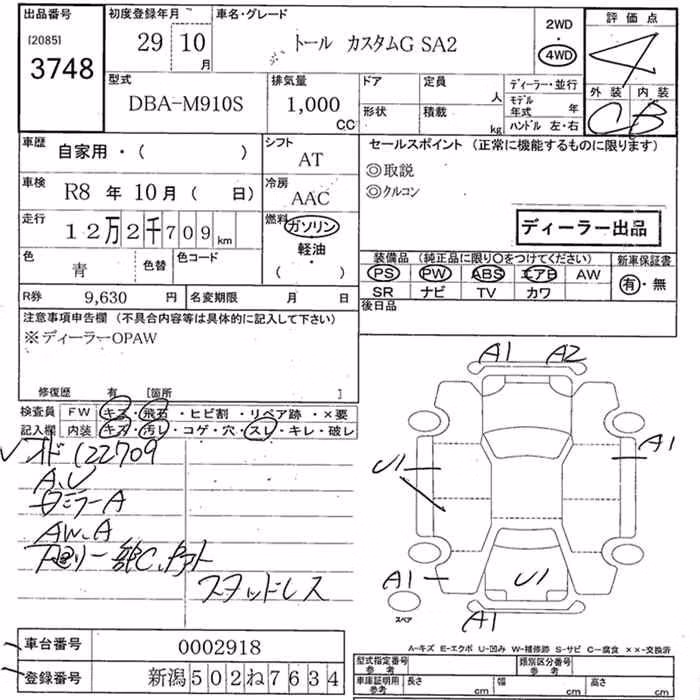 出品番号
[2085]
3748
初度登録年月
29 10 月
車名・グレード
トール カスタムG SA2
2WD
・
4WD
評価点
4
外装 内装
C B
型式
DBA-M910S
排気量
1,000 CC
ドア
形状
定員 人
積載 kg
ディーラー・並行
モデル年式 年
ハンドル 左・右
車歴
自家用・( )
シフト
AT
車検
R8 年 10 月 ( 日)
冷房
AAC
走行
12万2千709 km
燃料
ガソリン
軽油
・
( )
色
青
色替
色コード
R券 9,630 円
名変期限 月 日
セールスポイント (正常に機能するものに限ります)
◎取説
◎クルコン
ディーラー出品
装備品 (純正品に限り○をつけてください)
PS PW ABS エアB AW
SR ナビ TV カワ
新車保証書
有・無
後日品
注意事項申告欄 (不具合内容等は具体的に記入して下さい)
※ディーラーOPAW
修復歴 有 [箇所 ]
検査員 FW キズ・飛石・ヒビ割・リペア跡・×要
記入欄 内装 キズ・汚レ・コゲ・穴・スレ・キレ・破レ
オド122709
A、U
ミラーA
AW、A
下廻り一部C、
スタッドレス
A1 A2
A1
U1
A1
U1
A1
スペア
A-キズ E-エクボ U-凹み W-補修跡 S-サビ C-腐食 ××-交換済
車台番号 0002918
登録番号 新潟502ね7634
型式指定番号 参考
類別区分番号 参考
車庫証明用 参考
長さ cm
幅 cm
高さ cm